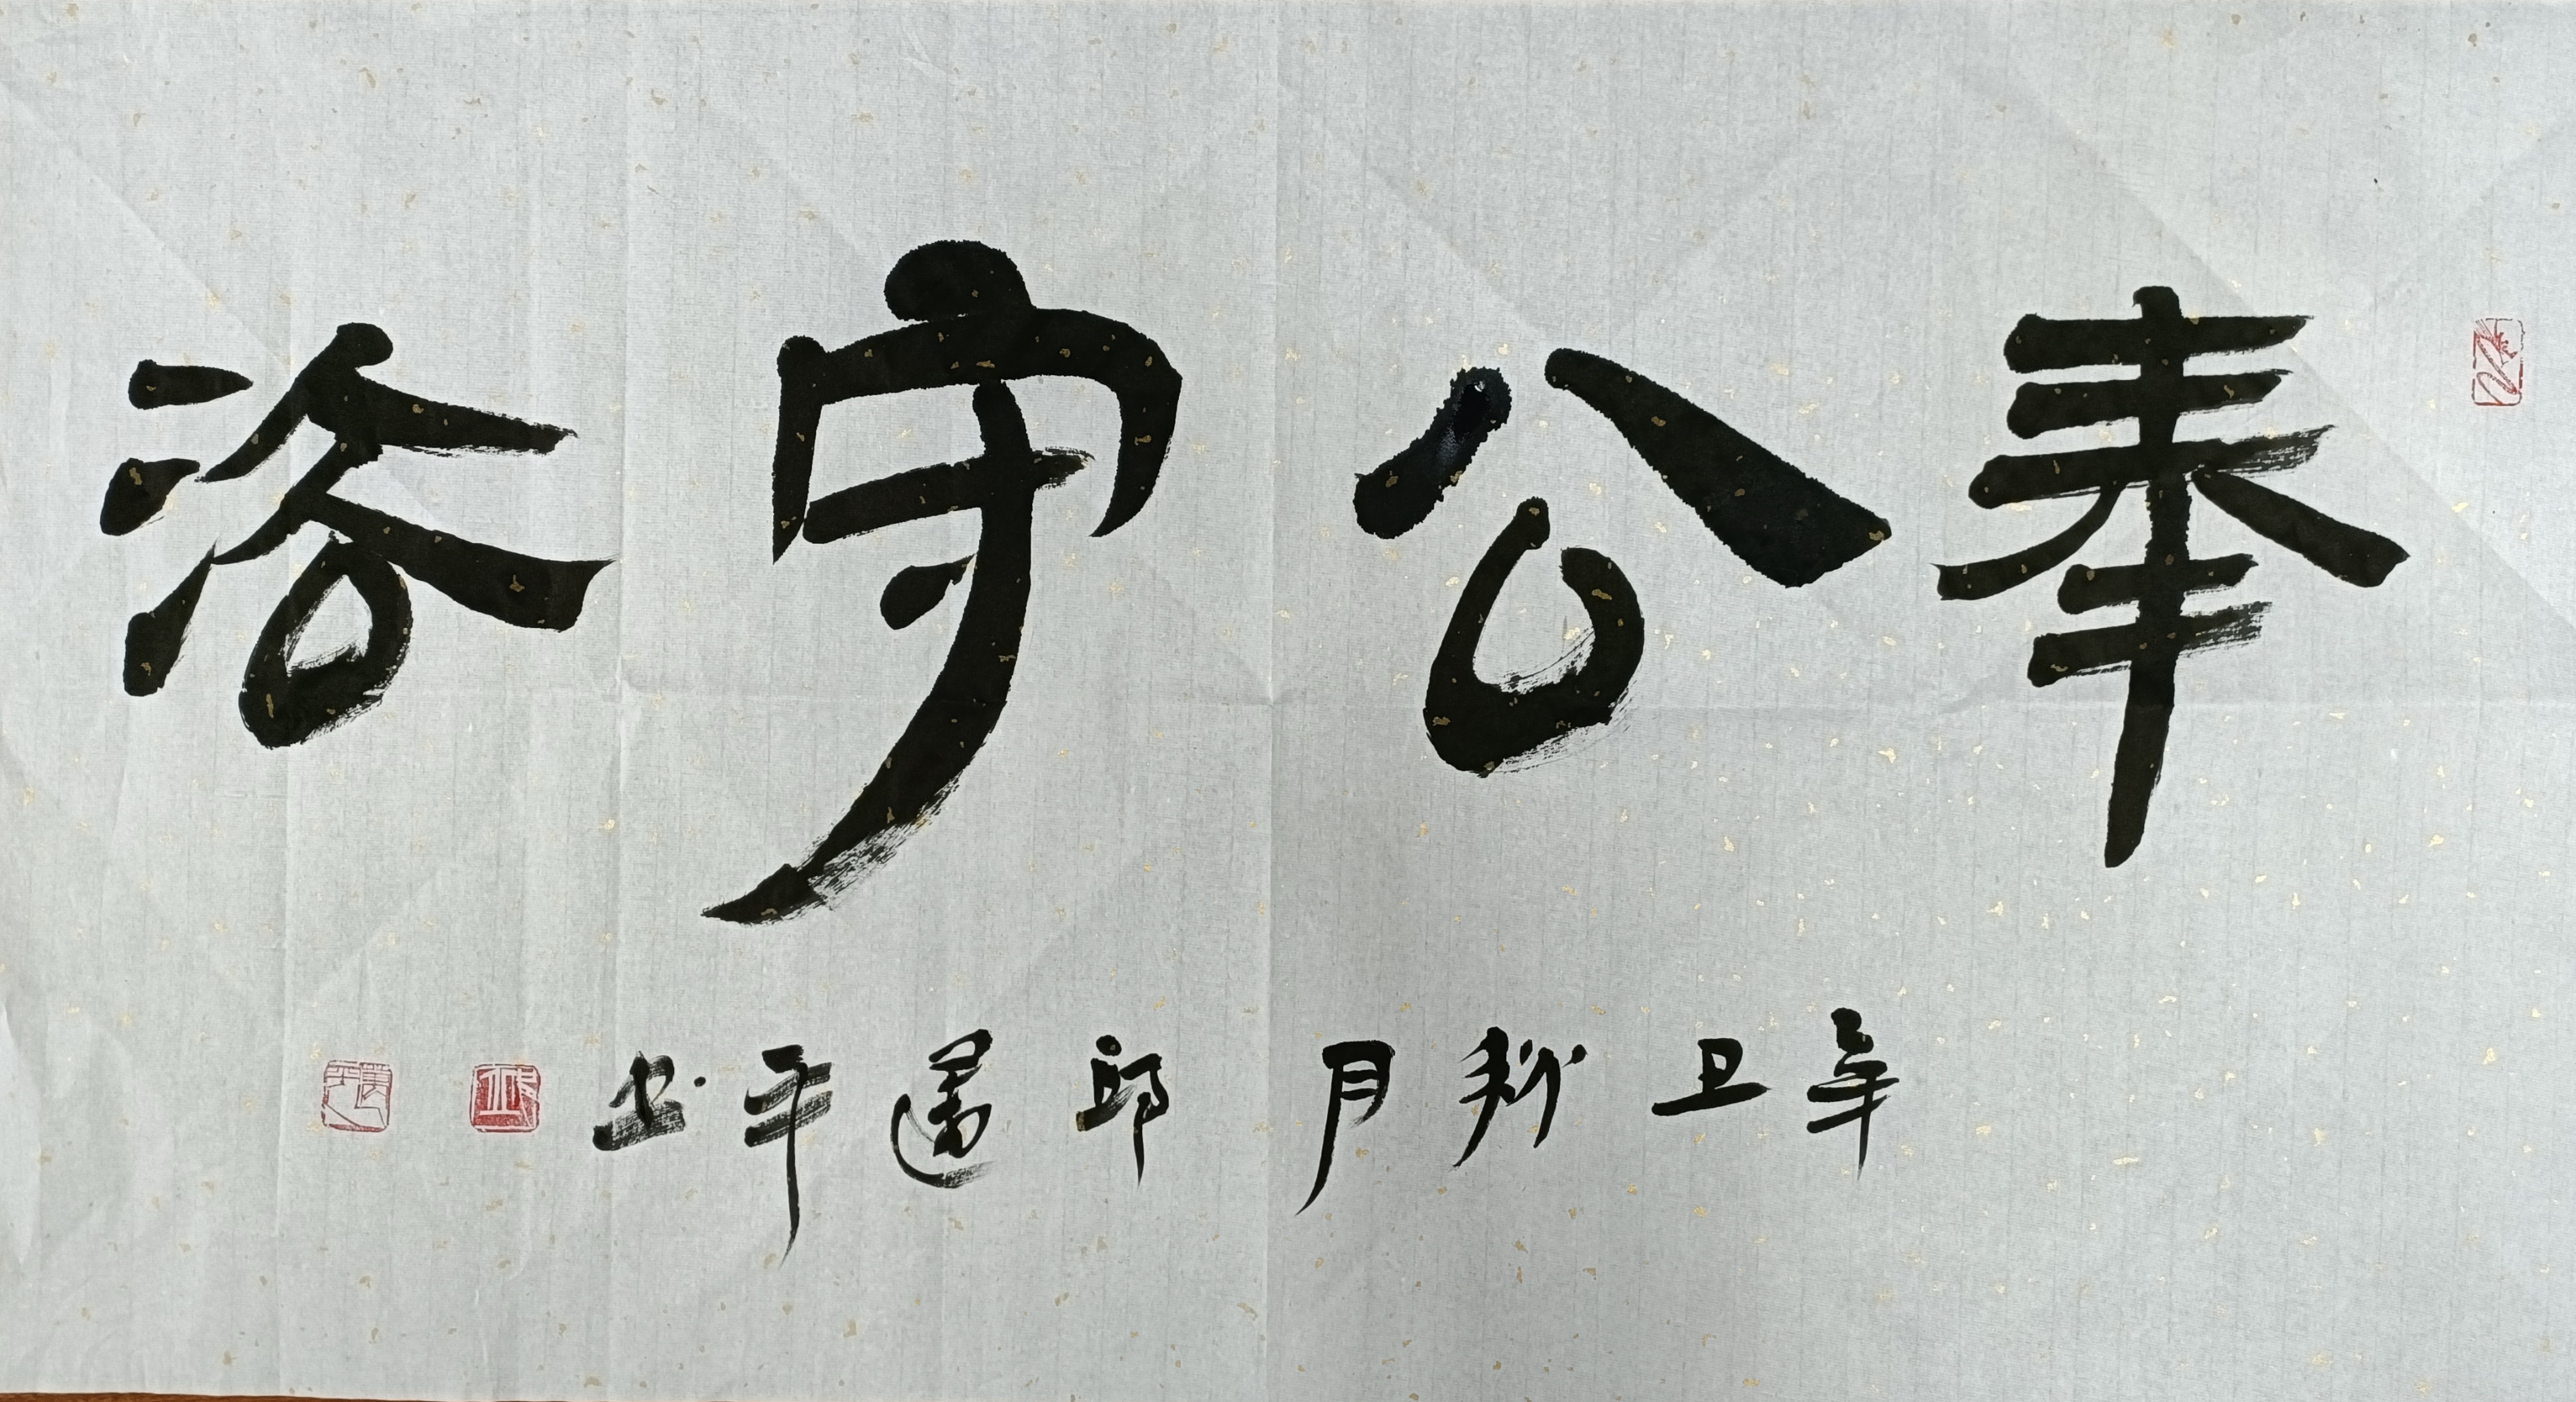 奉公守法
辛丑秋月邱平书